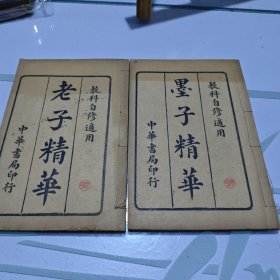 教科自修適用
老子精華
中華書局印行
教科自修適用
墨子精華
中華書局印行